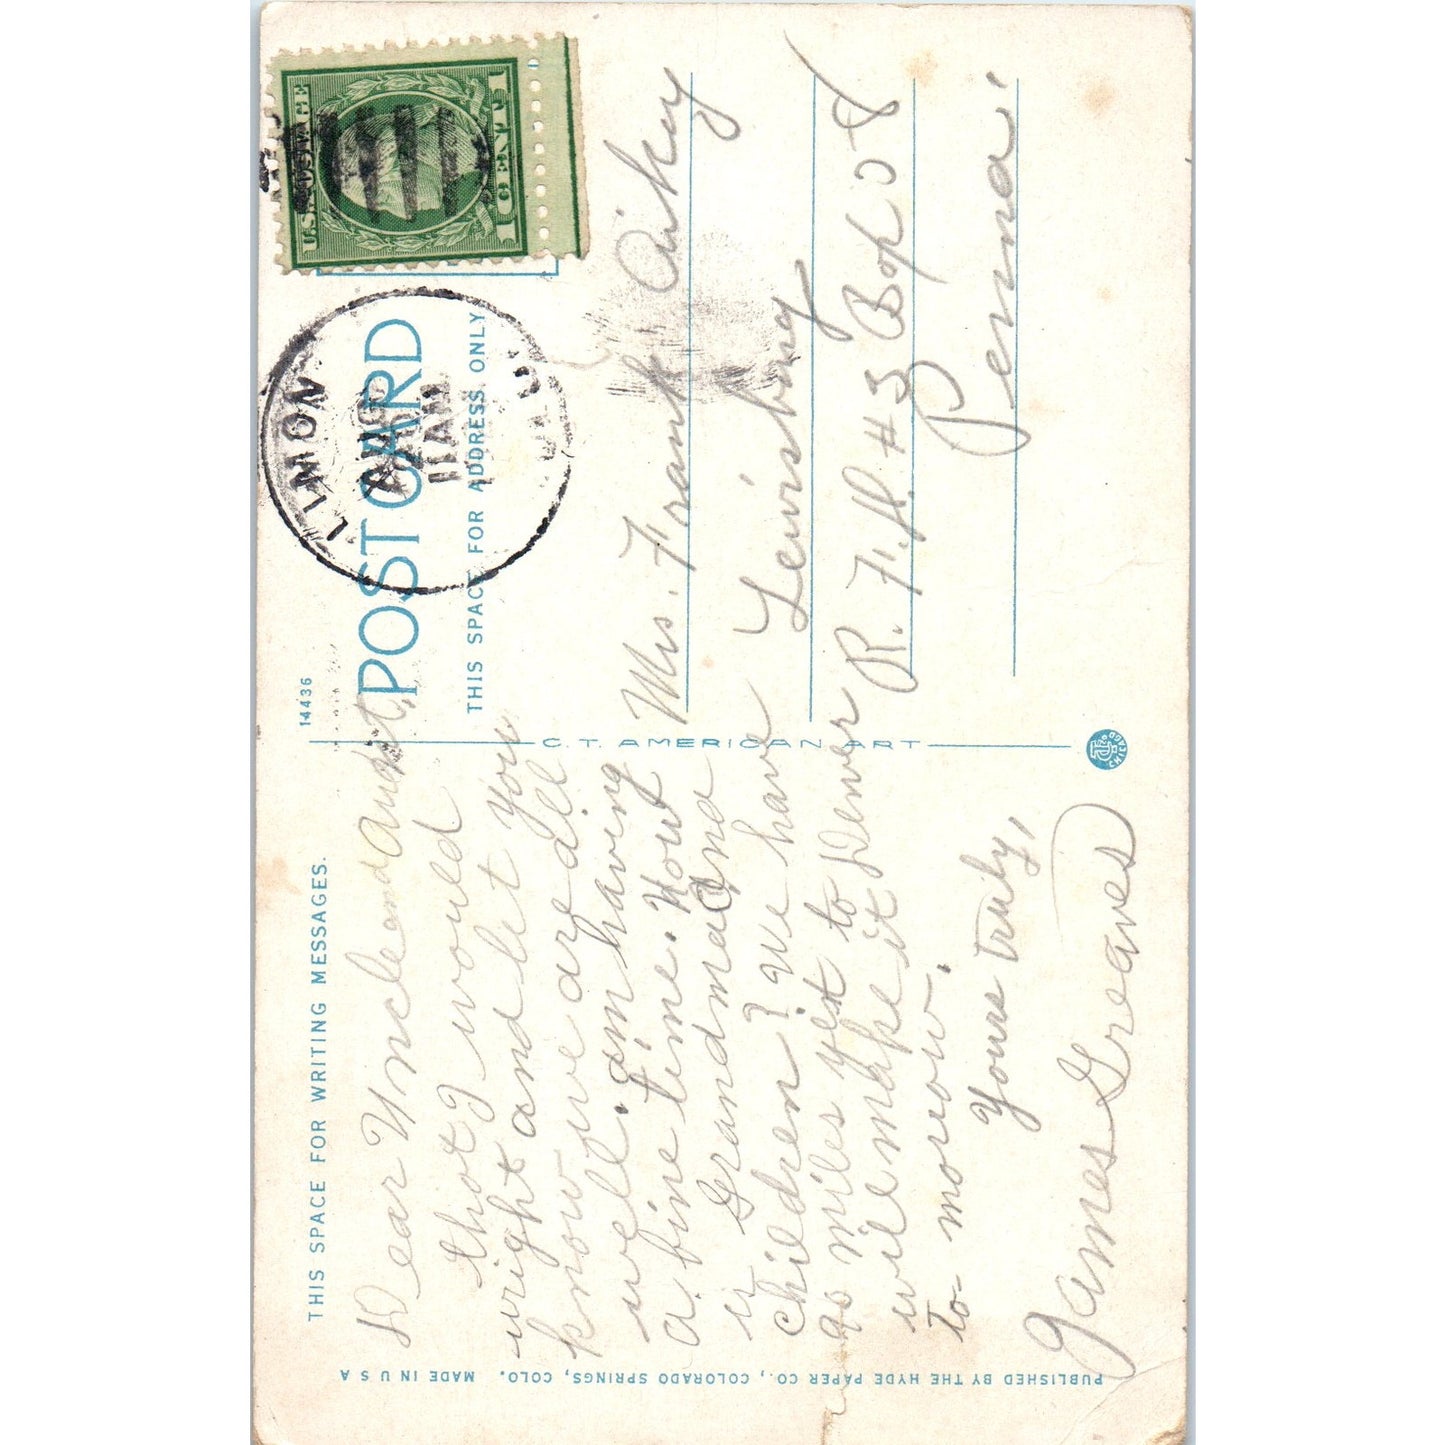 THIS SPACE FOR WRITING MESSAGES.
14436
POST CARD
THIS SPACE FOR ADDRESS ONLY
U.S. POSTAGE
1 CENT 1
LIMON
AUG
11 AM
Dear Uncle and Aunt,
thot I would
wright and let you
know we are all
well. am having
a fine time. How
is Grandma and
children? We have
90 miles yet to Denver
will make it
to-morrow.
Yours truly,
James Greaves
Mrs. Frank Aikey
Lewisburg
R. F. D. #3 Box
Penna.
C. T. AMERICAN ART
CHICAGO
PUBLISHED BY THE HYDE PAPER CO., COLORADO SPRINGS, COLO. MADE IN U S A